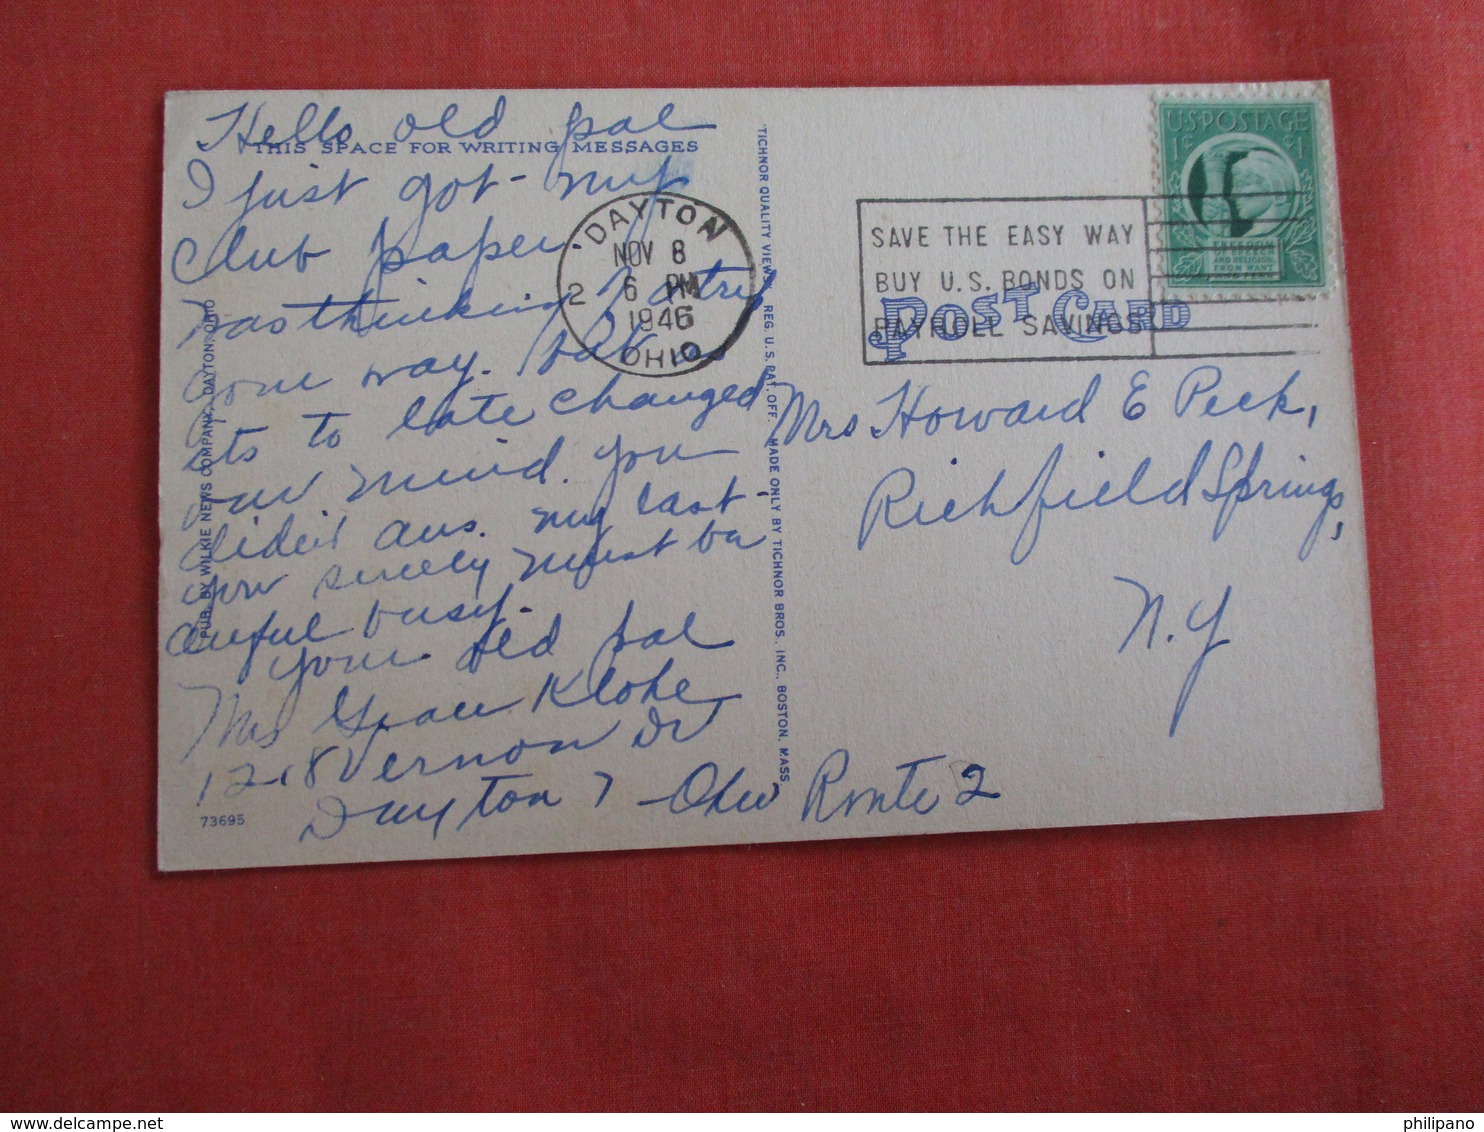 Hello old pal
THIS SPACE FOR WRITING MESSAGES
I just got my
Club paper,
was thinking of a trip
your way. but as
its to late changed
our mind. you
dident ans. my last
you surely must be
awful busy.
your old pal
Mrs Grace Klohe
1218 Vernon Dr
Dayton 7 Ohio
73695
PUB. BY WILKIE NEWS COMPANY, DAYTON, OHIO
TICHNOR QUALITY VIEWS, REG. U.S. PAT. OFF. MADE ONLY BY TICHNOR BROS., INC., BOSTON, MASS.
DAYTON
NOV 8
2 6 PM
1946
OHIO
SAVE THE EASY WAY
BUY U.S. BONDS ON
PAYROLL SAVINGS
POST CARD
U.S. POSTAGE
FREEDOM
OF SPEECH
AND RELIGION,
FROM WANT
Mrs Howard E Peck,
Richfield Springs,
N.Y
Route 2
philipano
delcampe.net